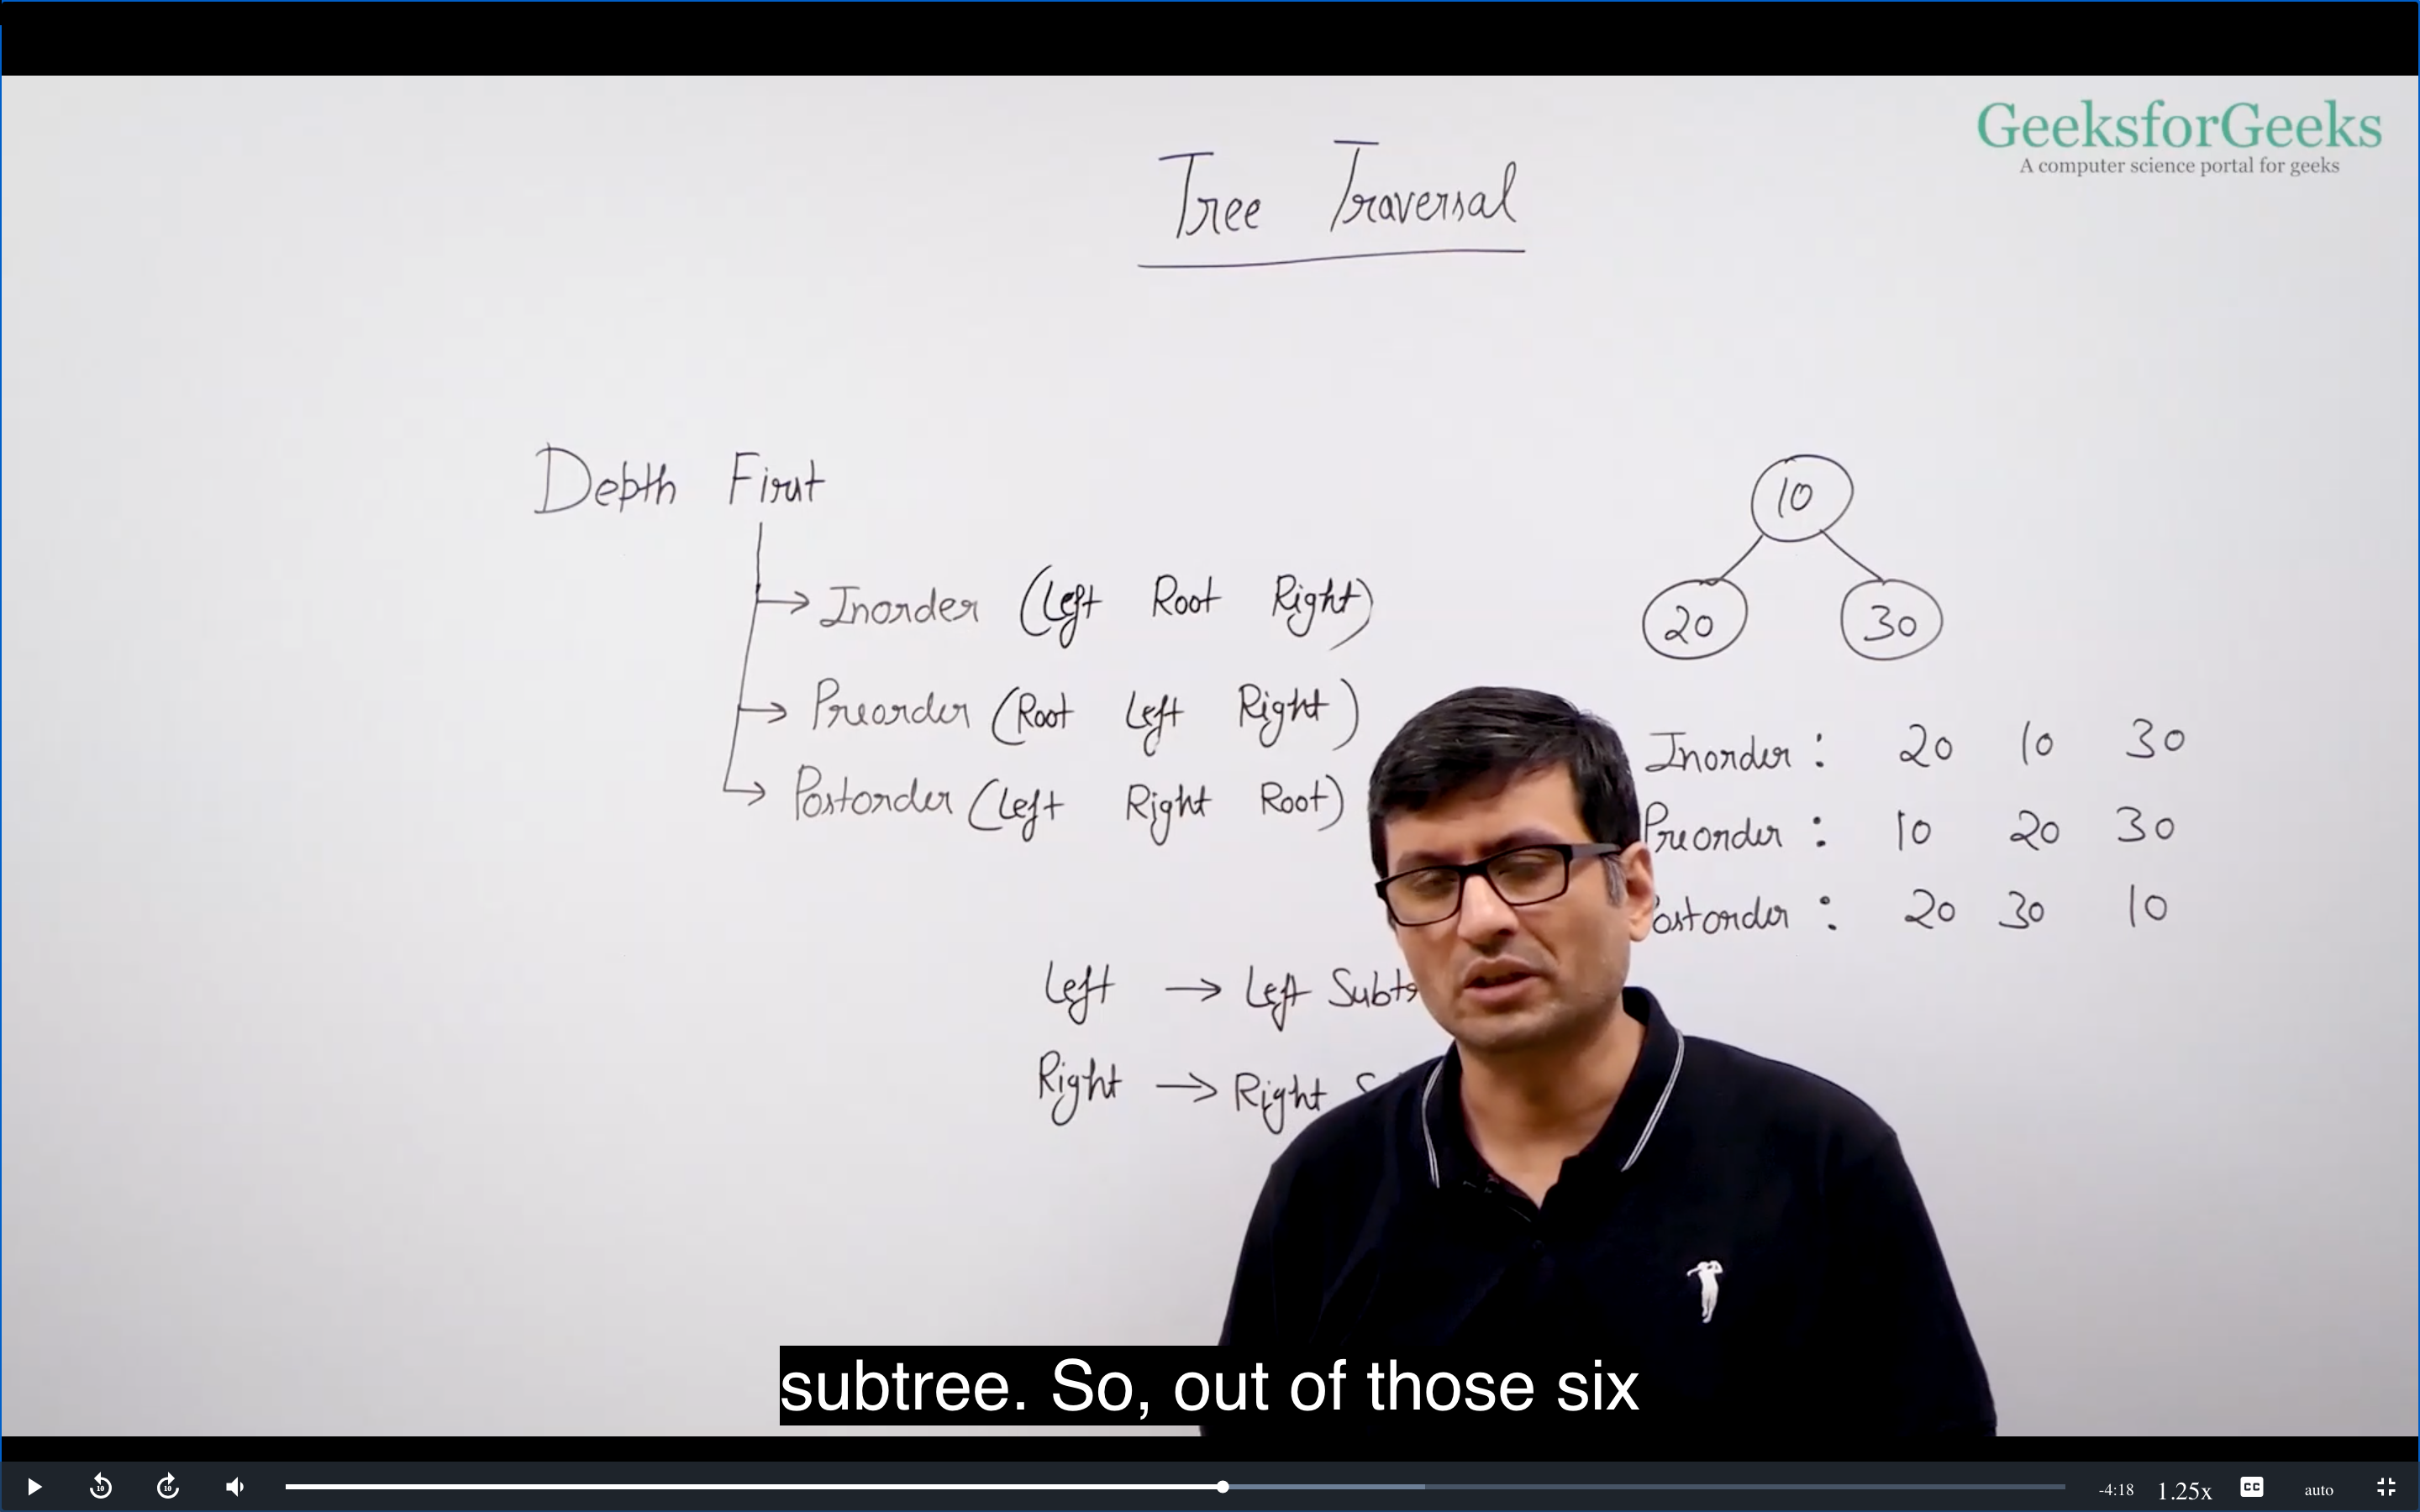 GeeksforGeeks
A computer science portal for geeks
Tree Traversal
Depth First
Inorder (Left Root Right)
Preorder (Root Left Right)
Postorder (Left Right Root)
Left → Left
Right → Right
10
20 30
Inorder : 20 10 30
Preorder : 10 20 30
ostorder : 20 30 10
subtree. So, out of those six
10 10
-4:18 1.25x CC auto